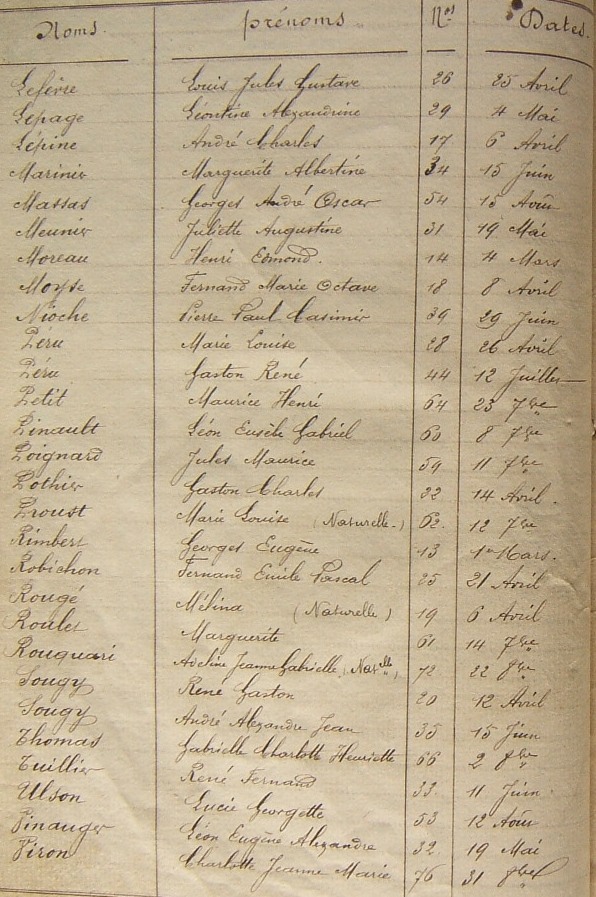 Noms. prénoms Nos Dates.
Lefèvre Louis Jules Gustave 26 25 Avril
Lepage Léontine Alexandrine 29 4 Mai
Lépine André Charles 17 6 Avril
Marinier Marguerite Albertine 34 15 Juin
Massas Georges André Oscar 54 15 Août
Meunier Juliette Augustine 31 19 Mai
Moreau Henri Edmond. 14 4 Mars
Moyse Fernand Marie Octave 18 8 Avril
Nioche Pierre Paul Casimir 39 29 Juin
Péru Marie Louise 28 26 Avril
Péru Gaston René 44 12 Juillet
Petit Maurice Henri 64 23 7bre
Pinault Léon Eusèbe Gabriel 60 8 7bre
Poignard Jules Maurice 59 11 7bre
Pothier Gaston Charles 22 14 Avril.
Proust Marie Louise (Naturelle.) 62. 12 7bre
Rimbert Georges Eugène 13 1er Mars.
Robichon Fernand Emile Pascal 25 21 Avril
Rougé Mélina (Naturelle) 19 6 Avril
Roulet Marguerite 61 14 7bre
Rouquari Adeline Jeanne Gabrielle (Natlle) 72 22 8bre
Sougy René Gaston 20 12 Avril
Sougy André Alexandre Jean 35 15 Juin
Thomas Gabrielle Charlotte Henriette 66 2 8bre
Tuillier René Fernand 33. 11 Juin.
Ulson Lucie Georgette 53 12 Août
Vinauger Léon Eugène Alexandre 32 19 Mai
Viron Charlotte Jeanne Marie 76 31 8bre